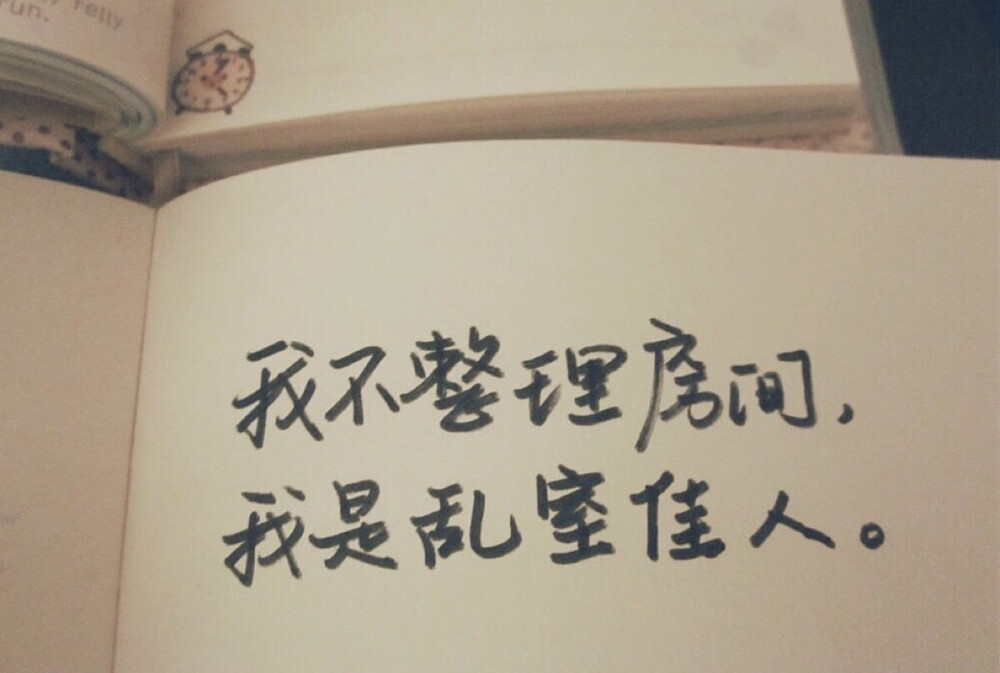 relly
run.
我不整理房间,
我是乱室佳人。